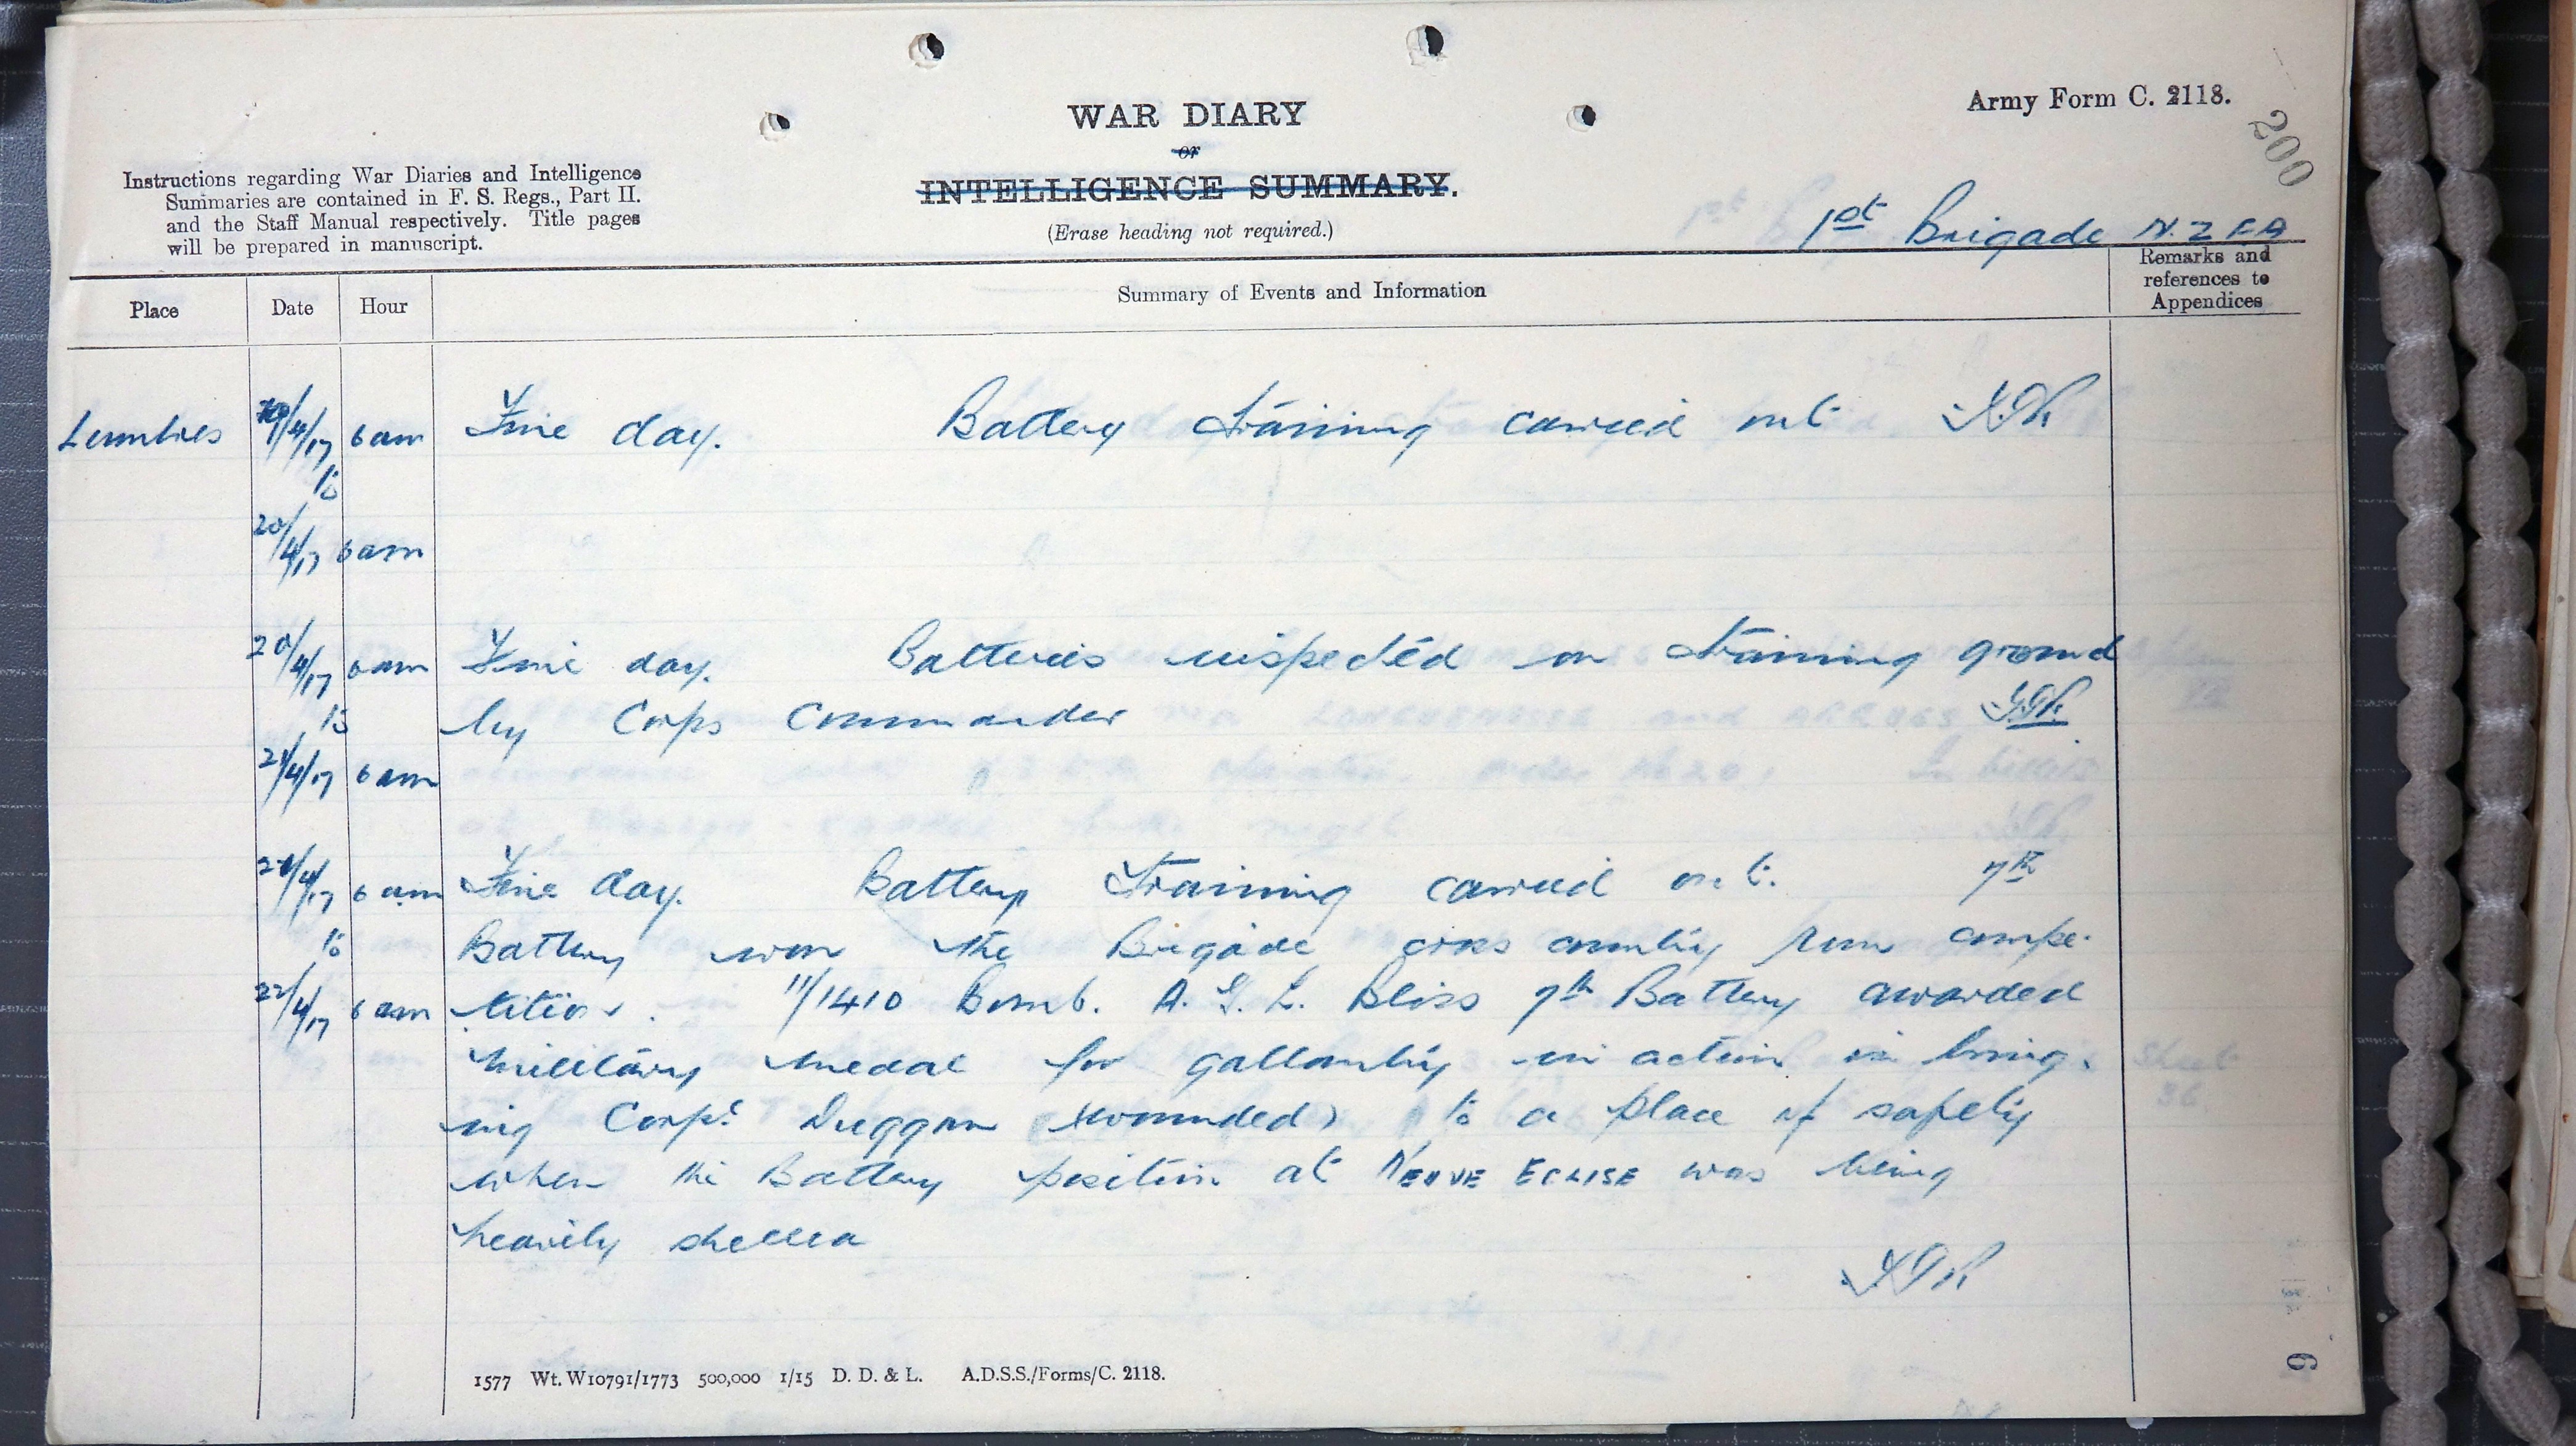 Army Form C. 2118.
200
WAR DIARY
or
INTELLIGENCE SUMMARY.
(Erase heading not required.)
Instructions regarding War Diaries and Intelligence
Summaries are contained in F. S. Regs., Part II.
and the Staff Manual respectively. Title pages
will be prepared in manuscript.
1st Brigade N.Z.F.A
Place Date Hour Summary of Events and Information Remarks and references to Appendices
Lumbres 19/4/17 6am Fine day. Battery training carried out
to
20/4/17 6am
20/4/17 6am Fine day. Batteries inspected on training ground
to by Corps Commander
21/4/17 6am
21/4/17 6am Fine day. Battery training carried out. 7th
to Battery won the Brigade cross country run compe-
22/4/17 6am tition. 11/1410 Bomb. A. G. L. Bliss 7th Battery awarded
military medal for gallantry in action in bring-
ing Corpl Duggan (wounded) to a place of safety
when the Battery position at NEUVE EGLISE was being
heavily shelled
1577 Wt. W10791/1773 500,000 1/15 D. D. & L. A.D.S.S./Forms/C. 2118.
6